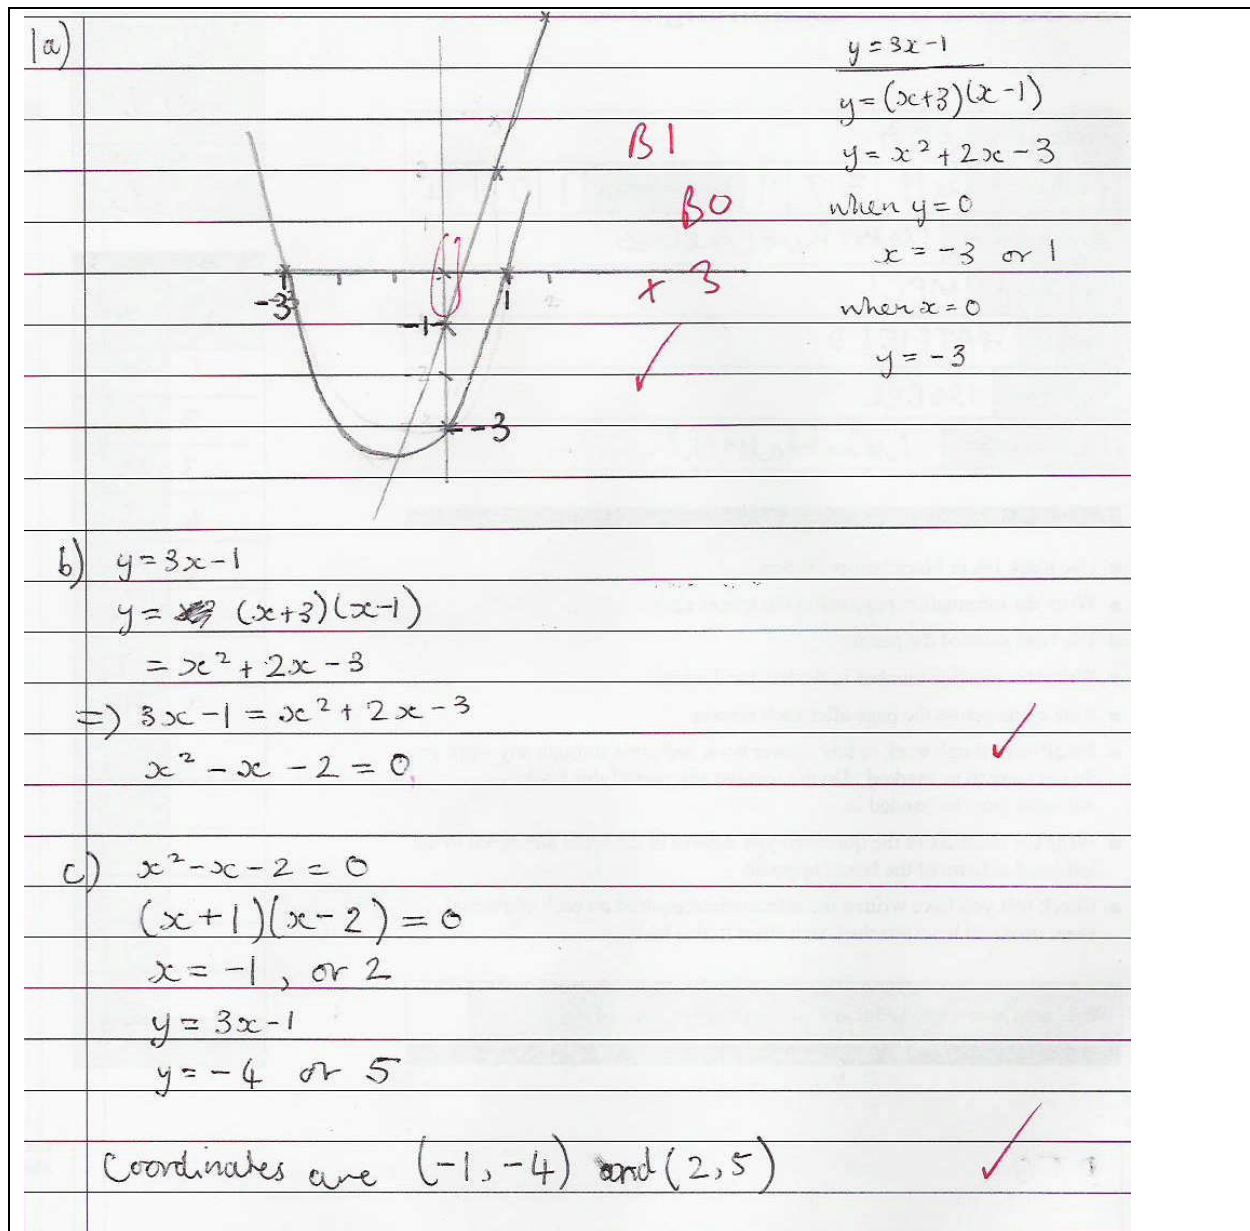 1a)
y = 3x - 1
y = (x+3)(x-1)
y = x² + 2x - 3
when y = 0
x = -3 or 1
when x = 0
y = -3
B1
B0
x 3
-3
1
-1
-2
-3
b) y = 3x - 1
y = (x+3)(x-1)
= x² + 2x - 3
=) 3x - 1 = x² + 2x - 3
x² - x - 2 = 0
c) x² - x - 2 = 0
(x + 1)(x - 2) = 0
x = -1, or 2
y = 3x - 1
y = -4 or 5
Coordinates are (-1, -4) and (2, 5)